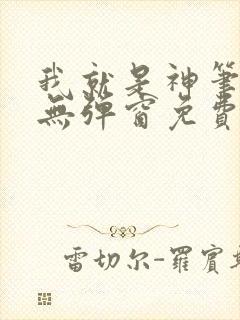 我就是神筆
無彈窗免費
雷切尔-羅賓斯